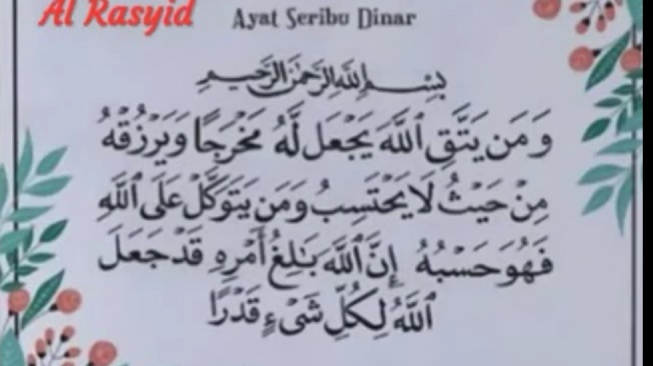 Al Rasyid
Ayat Seribu Dinar
بِسْمِ اللّٰهِ الرَّحْمٰنِ الرَّحِيْمِ
وَمَن يَتَّقِ ٱللَّهَ يَجْعَل لَّهُۥ مَخْرَجًا وَيَرْزُقْهُ
مِنْ حَيْثُ لَا يَحْتَسِبُ وَمَن يَتَوَكَّلْ عَلَى ٱللَّهِ
فَهُوَ حَسْبُهُۥٓ إِنَّ ٱللَّهَ بَٰلِغُ أَمْرِهِۦ قَدْ جَعَلَ
ٱللَّهُ لِكُلِّ شَىْءٍ قَدْرًا